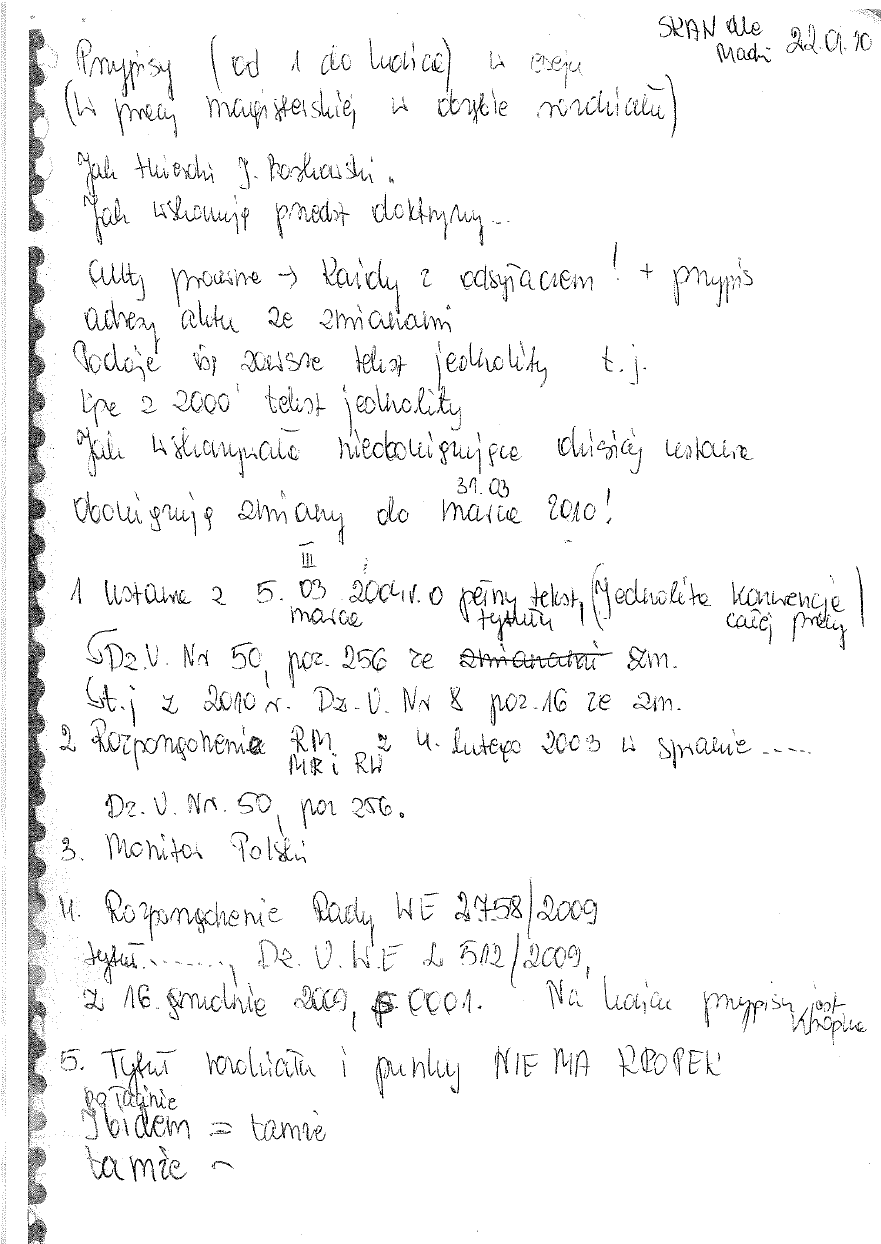 SKAN dla
Madzi 22.01.10
Przypisy (od 1 do końca) w eseju
(w pracy magisterskiej w obrębie rozdziału)
Jak twierdzi J. Boćkowski.
Jak wskazują przedst doktryny...
Akty prawne → każdy z odsyłaczem! + przypis
adresy aktu ze zmianami
Podaję się zawsze tekst jednolity t.j.
kpa z 2000 tekst jednolity
Jak wskazywała nieobowiązująca dzisiaj ustawa
31.03
obowiązują zmiany do marca 2010!
III
1 Ustawa z 5. 03 2004r. o pełny tekst, (Jednolita konwencja
marca tytułu całej pracy)
Dz.U. Nr 50, poz. 256 ze zmianami zm.
t.j z 2010 r. Dz.U. Nr 8 poz.16 ze zm.
2 Rozporządzenie RM z 4. lutego 2003 w sprawie .....
MRi RW
Dz.U. Nr. 50, poz 256.
3. Monitor Polski
4. Rozporządzenie Rady WE 2758/2009
tytuł........, Dz. U.W.E L 512/2009,
z 16. grudnia 2009, s 0001. Na końcu przypisy jest
kropka
5. Tytuł rozdziału i punkty NIE MA KROPEK
po łacinie
Ibidem = tamże
tamże ~